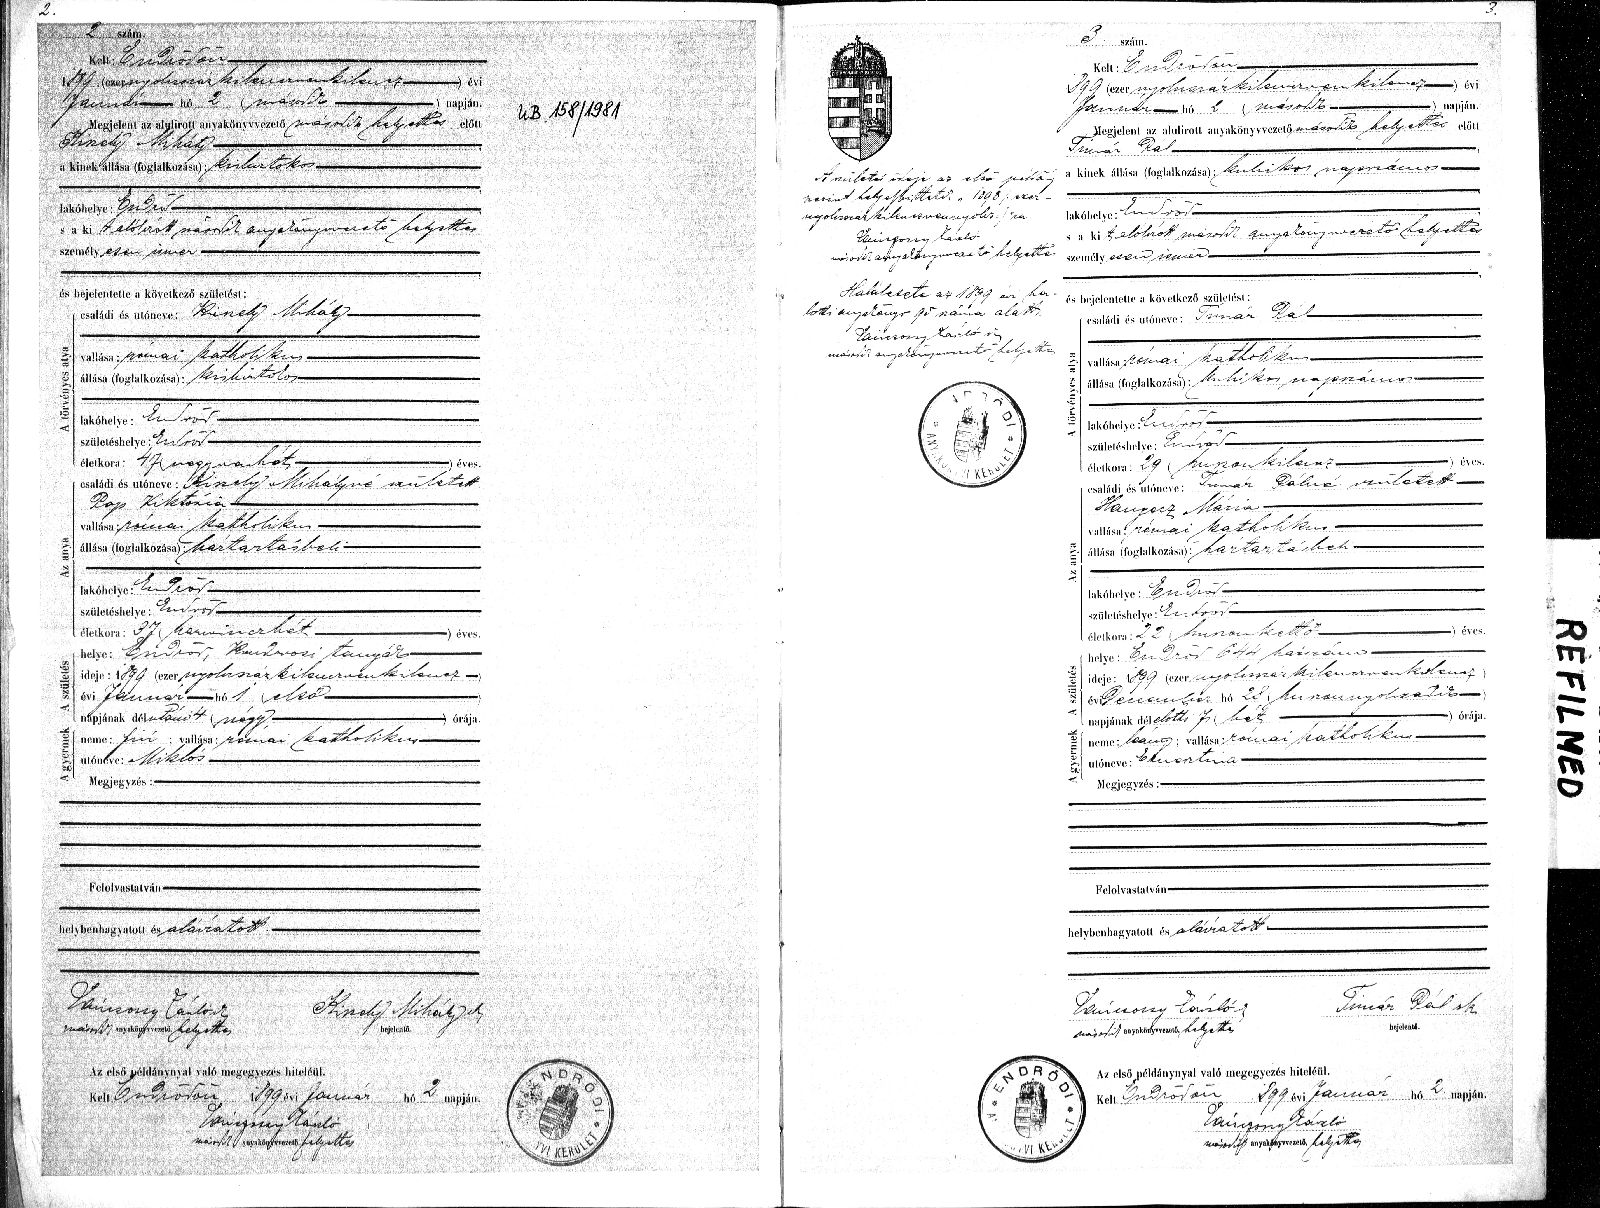 2.
2 szám.
Kelt: Endrődön
1899 (ezer nyolcszázkilenczvenkilencz) évi
Január hó 2 (második) napján.
Megjelent az alulirott anyakönyvvezető második helyettes előtt
Kinely Mihály
a kinek állása (foglalkozása): kisbirtokos
lakóhelye: Endrőd
s a ki t alólirott második anyakönyvvezető helyettes
személyesen ismer
és bejelentette a következő születést:
A törvényes atya
családi és utóneve: Kinely Mihály
vallása: római katholikus
állása (foglalkozása): kisbirtokos
lakóhelye: Endrőd
születéshelye: Endrőd
életkora: 47 (negyvenhét) éves.
Az anya
családi és utóneve: Kinely Mihályné született
Pap Viktória
vallása: római katholikus
állása (foglalkozása): háztartásbeli
lakóhelye: Endrőd
születéshelye: Endrőd
életkora: 37 (harminczhét) éves.
A születés
helye: Endrőd, tanyán
ideje: 1899 (ezer nyolcszázkilenczvenkilencz)
évi Január hó 1 (első)
napjának délután 4 (négy) órája.
A gyermek
neme: fiú; vallása: római katholikus
utóneve: Miklós
Megjegyzés:
Felolvastatván
helybenhagyatott és aláiratott.
László
második anyakönyvvezető, helyettes
Kinely Mihály
bejelentő.
Az első példánynyal való megegyezés hiteléül.
Kelt Endrődön 1899 évi Január hó 2 napján.
László
második anyakönyvvezető, helyettes
ENDRŐDI
ANYAKÖNYVI KERÜLET
UB 158/1981
3.
3 szám.
Kelt: Endrődön
899 (ezer nyolcszázkilenczvenkilencz) évi
Január hó 2 (második) napján.
Megjelent az alulirott anyakönyvvezető második helyettes előtt
Timár Pál
a kinek állása (foglalkozása): kubikos napszámos
lakóhelye: Endrőd
s a ki t alólirott második anyakönyvvezető helyettes
személyesen ismer
és bejelentette a következő születést:
A törvényes atya
családi és utóneve: Timár Pál
vallása: római katholikus
állása (foglalkozása): kubikos napszámos
lakóhelye: Endrőd
születéshelye: Endrőd
életkora: 29 (huszonkilencz) éves.
Az anya
családi és utóneve: Timár Pálné született
Hanyecz Mária
vallása: római katholikus
állása (foglalkozása): háztartásbeli
lakóhelye: Endrőd
születéshelye: Endrőd
életkora: 22 (huszonkettő) éves.
A születés
helye: Endrőd 644 házszám
ideje: 1899 (ezer nyolcszázkilenczvenkilencz)
évi December hó 28 (huszonnyolczadik)
napjának délelőtti 7 (hét) órája.
A gyermek
neme: leány; vallása: római katholikus
utóneve: Ernesztina
Megjegyzés:
Felolvastatván
helybenhagyatott és aláiratott
László
második anyakönyvvezető, helyettes
Timár Pál sk
bejelentő.
Az első példánynyal való megegyezés hiteléül.
Kelt Endrődön 899 évi Január hó 2 napján.
László
második anyakönyvvezető, helyettes
ENDRŐDI
ANYAKÖNYVI KERÜLET
A születés ideje az első példány
szerint helyesbíttetett „1898, ezer-
nyolcszázkilenczvennyolcz"/ra
László
második anyakönyvvezető helyettes
Halálesete az 1899 évi ha-
lotti anyakönyv 90 száma alatt.
László
második anyakönyvvezető helyettes
ENDRŐDI
ANYAKÖNYVI KERÜLET
REFILMED